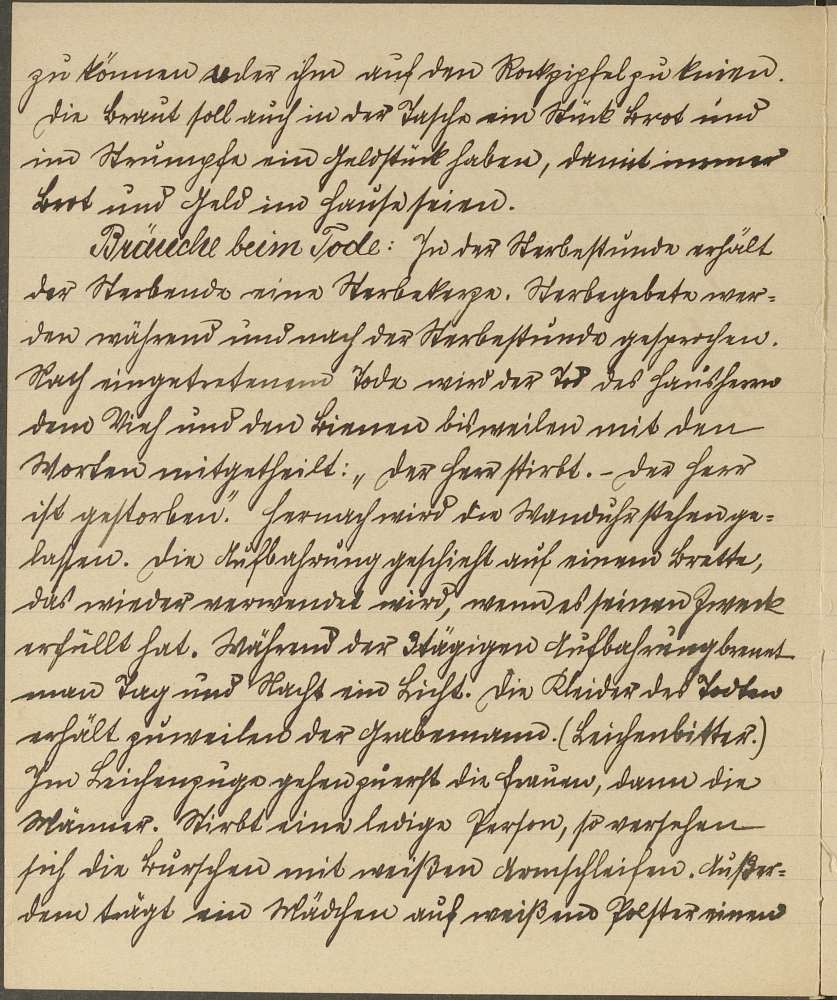 zu können oder ihm auf den Rockzipfel zu knien.
Die Braut soll auch in der Tasche ein Stück Brot und
im Strumpfe ein Geldstück haben, damit immer
Brot und Geld im Hause seien.
Bräuche beim Tode: In der Sterbestunde erhält
der Sterbende eine Sterbekerze. Sterbegebete wer=
den während und nach der Sterbestunde gesprochen.
Nach eingetretenem Tode wird der Tod des Hausherrn
dem Vieh und den Bienen bisweilen mit den
Worten mitgetheilt: „Der Herr stirbt. - Der Herr
ist gestorben“. Hernach wird die Wanduhr stehen ge=
lassen. Die Aufbahrung geschieht auf einem Brette,
das wieder verwendet wird, wenn es seinen Zweck
erfüllt hat. Während der 3tägigen Aufbahrung brennt
man Tag und Nacht ein Licht. Die Kleider des Todten
erhält zuweilen der Grabemann. (Leichenbitter.)
Im Leichenzuge gehen zuerst die Frauen, dann die
Männer. Stirbt eine ledige Person, so versehen
sich die Burschen mit weißen Armschleifen. Außer=
dem trägt ein Mädchen auf weißem Polster einen